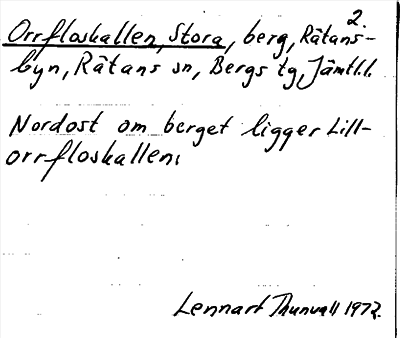 2.
Orrfloskallen, Stora, berg, Rätans-
byn, Rätans sn, Bergs tg, Jämtl.l.
Nordost om berget ligger Lill-
orrfloskallen.
Lennart Thunvall 1972.